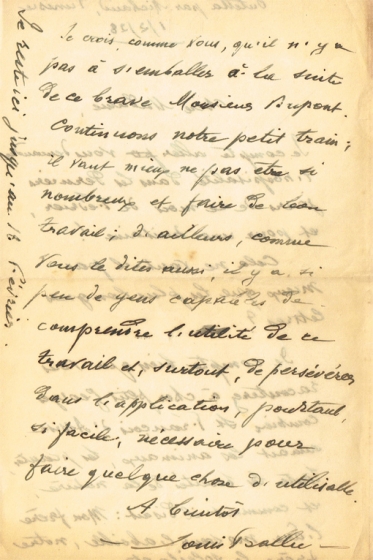 1/2/28
Je crois, comme vous, qu'il n'y a
pas à s'emballer à la suite
de ce brave Monsieur Dupont.
Continuons notre petit train;
il vaut mieux ne pas être si
nombreux et faire de bon
travail; d'ailleurs, comme
vous le dites aussi, il y a si
peu de gens capables de
comprendre l'utilité de ce
travail et, surtout, de persévérer
dans l'application, pourtant,
si facile, nécessaire pour
faire quelque chose d'utilisable.
A bientôt
Louis
Je reste ici jusqu'au 12 Février.